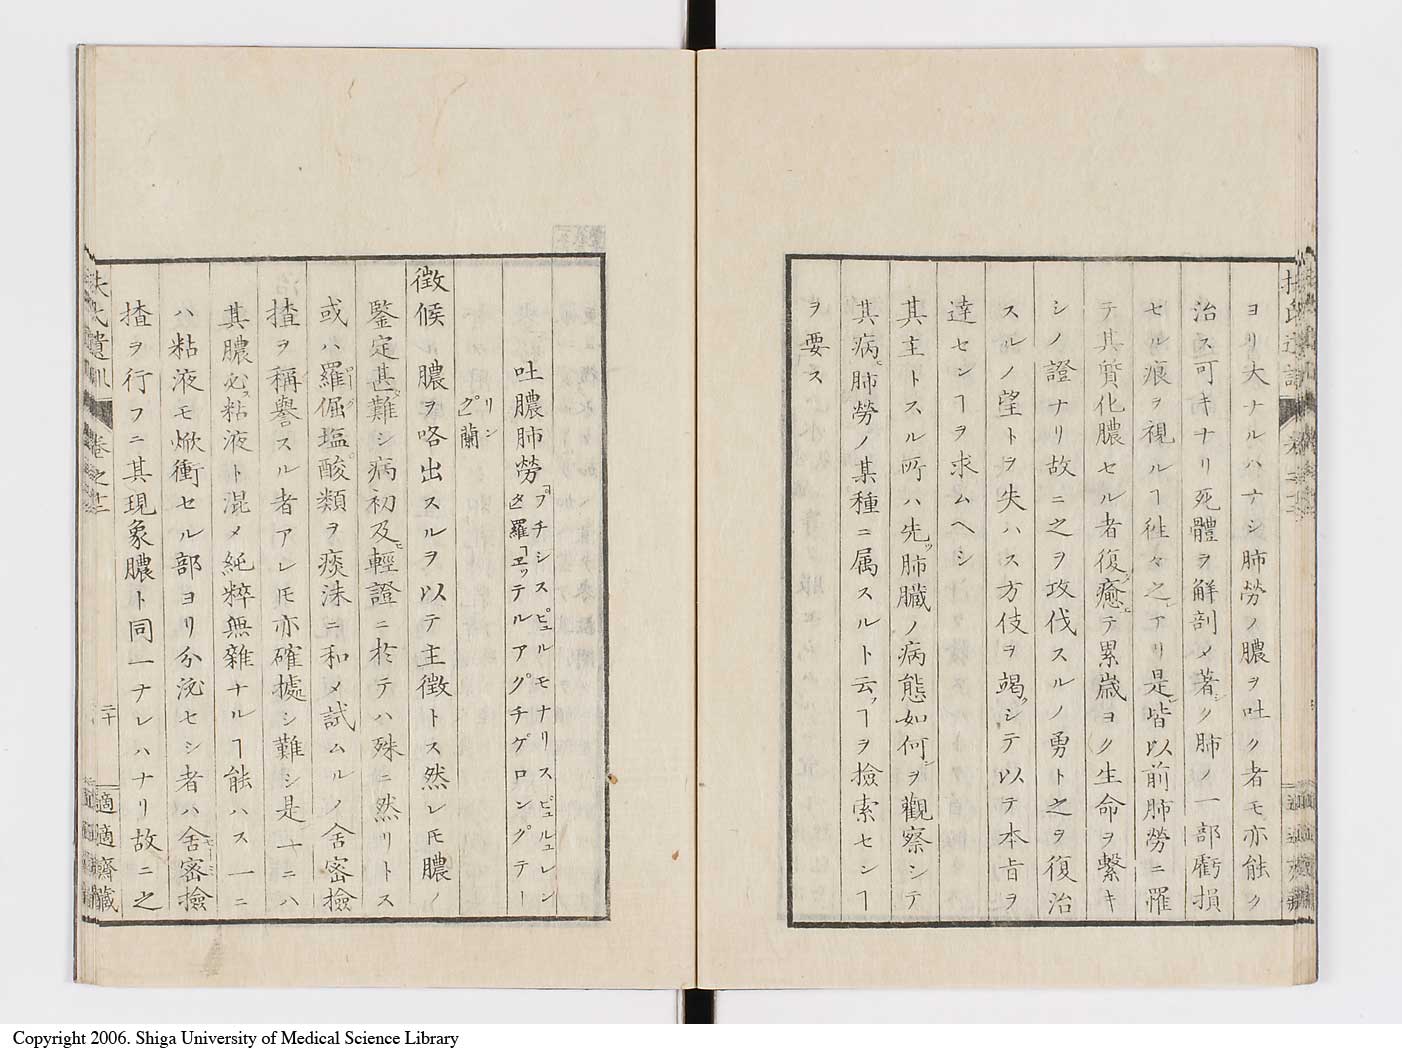 ヨリ大ナルハナシ肺勞ノ膿ヲ吐ク者モ亦能ク
治ス可キナリ死體ヲ解剖メ著シク肺ノ一部虧損
セル痕ヲ視ルヿ徃々之レアリ是レ皆以前肺勞ニ罹
テ其質化膿セル者復タ癒ヒテ累歳ヨク生命ヲ繋キ
シノ證ナリ故ニ之ヲ攻伐スルノ勇ト之ヲ復治
スルノ望トヲ失ハス方伎ヲ竭シテ以テ本旨ヲ
達センヿヲ求ムヘシ
其主トスル所ハ先ツ肺臓ノ病態如何ンヲ觀察シテ
其病ヒ肺勞ノ某種ニ属スルト云フヿヲ撿索センヿ
ヲ要ス
吐膿肺勞 フチシスピュルモナリスピュルュレン
タ羅ヱッテルアグチゲロングテー
リン
グ蘭
徴候 膿ヲ咯出スルヲ以テ主徴トス然レ𪜈膿ノ
鑒定甚タ難シ病初及ヒ輕證ニ於テハ殊ニ然リトス
或ハ羅倔塩酸類ヲ痰沫ニ和メ試ムルノ舍密撿
揸ヲ稱譽スル者アレ𪜈亦確據シ難シ是レ一ニハ
其膿必ス粘液ト混メ純粹無雜ナルヿ能ハス一ニ
ハ粘液モ焮衝セル部ヨリ分泌セシ者ハ舍密撿
揸ヲ行フニ其現象膿ト同一ナレハナリ故ニ之
扶氏遺訓 卷之十二
二十
適適齋藏
Copyright 2006. Shiga University of Medical Science Library